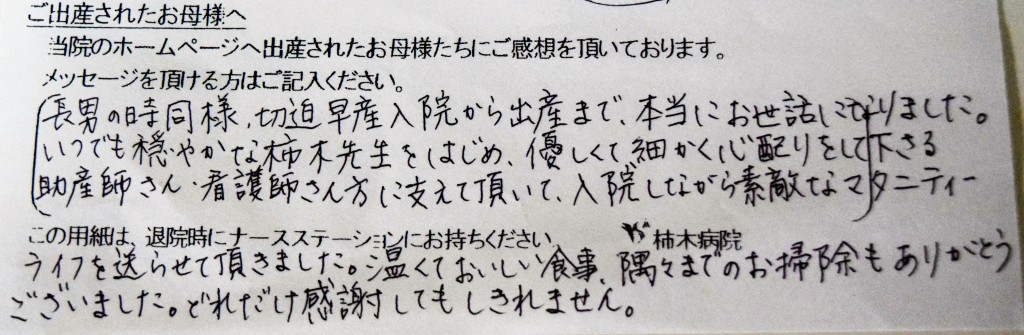 ご出産されたお母様へ
当院のホームページへ出産されたお母様たちにご感想を頂いております。
メッセージを頂ける方はご記入ください。
長男の時同様、切迫早産入院から出産まで、本当にお世話になりました。
いつでも穏やかな柿木先生をはじめ、優しくて細かく心配りをして下さる
助産師さん・看護師さん方に支えて頂いて、入院しながら素敵なマタニティー
この用紙は、退院時にナースステーションにお持ちください。
柿木病院
ライフを送らせて頂きました。温くておいしい食事、隅々までのお掃除もありがとう
ございました。どれだけ感謝してもしきれません。